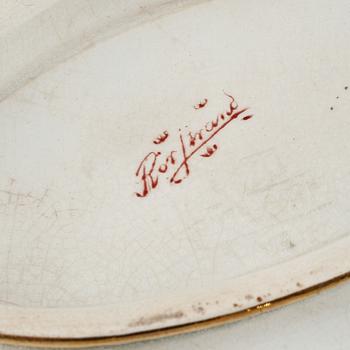 Rörstrand